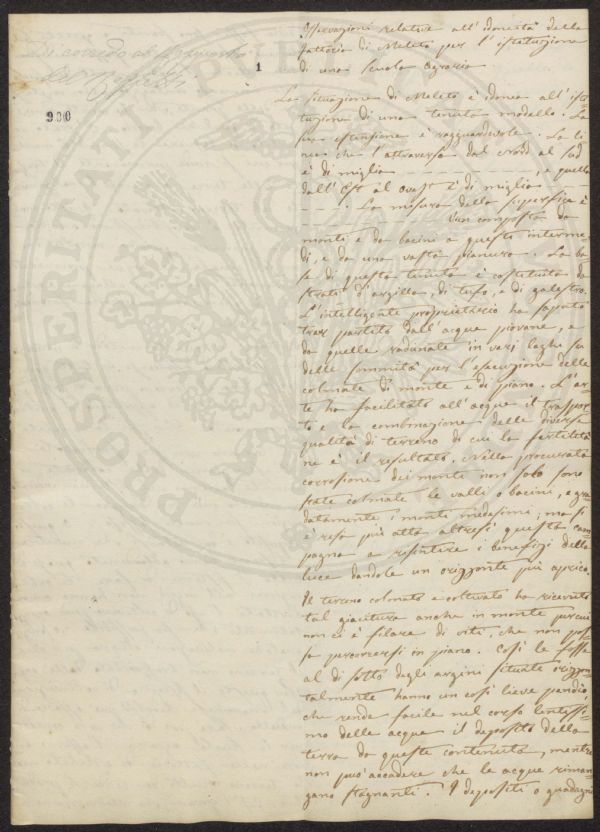 Osservazioni relative all'idoneità della
fattoria di Meleto per l'istituzione
di una Scuola Agraria
Di corredo al
1
990
PROSPERITATI PUBLICAE
La situazione di Meleto è idonea all'isti-
tuzione di una tenuta modello. La
sua estensione è ragguardevole. La li
nea che l'attraversa dal Nord al Sud
è di miglia — — — — , e quella
dall'Est al Ovest è di miglia — —
— — — . La misura della superficie è
Un composto da
monti e da bacini a questi interme-
di, e da una vasta pianura. La ba-
se di questa tenuta è costituita da
strati d'argilla, di tufo, e di galestro.
L'intelligente proprietario ha saputo
trar partito dall'acque piovane, e
da quelle radunate in vari laghi su
delle sommità per l'esecuzione delle
colmate di monte e di piano. L'ar-
te ha facilitato all'acque il traspor-
to e la combinazione delle diverse
qualità di terreno di cui la fertilità
ne è il resultato. Nella procurata
corrosione dei monti non solo sono
state colmate le valli o bacini, e gra
datamente i monti medesimi, ma si
è reso più atta altresì questa cam-
pagna a risentire i benefizi della
luce dandole un orizzonte più aprico.
Il terreno colmato e coltivato ha ricevuto
tal giacitura anche in monte percui
non ci è filare di viti, che non pos-
sa percorrersi in piano. Così le fosse
al di sotto degli argini situate orizzon-
talmente hanno un così lieve pendio,
che rende facile nel corso lentissi-
mo delle acque il deposito della
terra da queste contenuta, mentre
non può accadere che le acque riman-
gano stagnanti. I depositi o guadagni